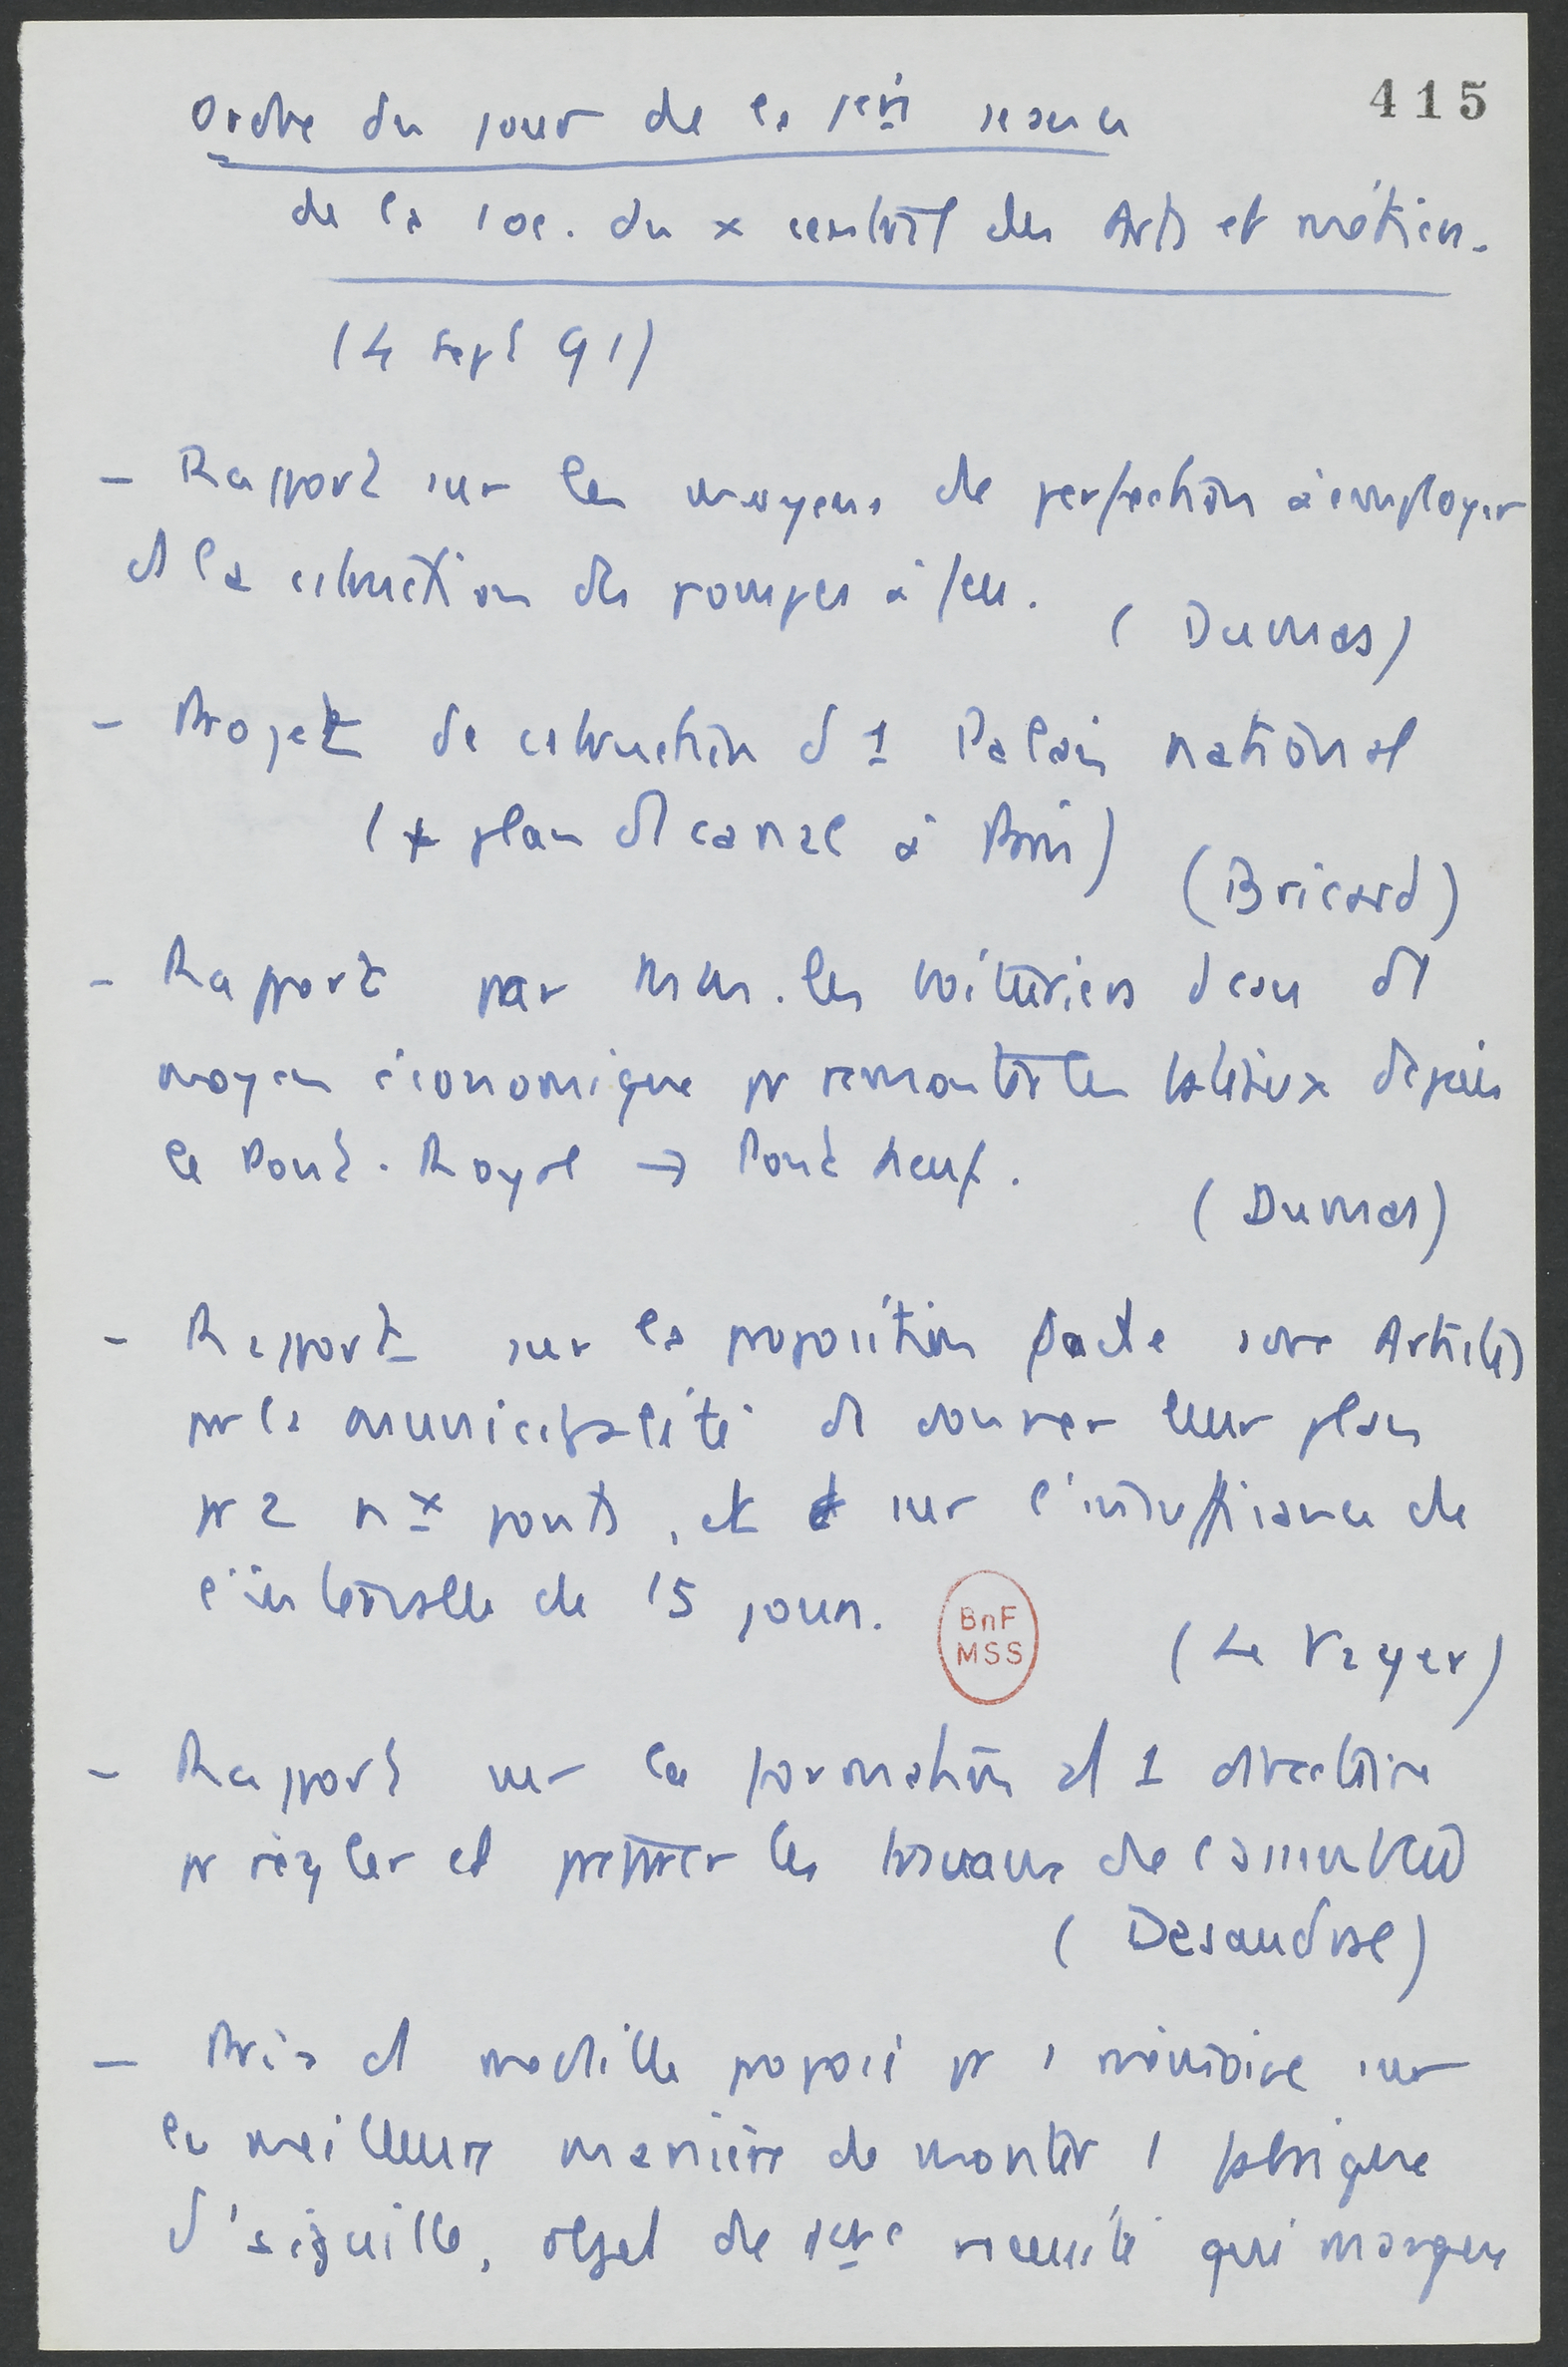 415
Ordre du jour de la 1ère séance
de la soc. du x central des Arts et métiers.
(4 sept 91)
- Rapport sur les moyens de perfection à employer
ds la cstruction des pompes à feu.
(Dumas)
- Projet de cstruction d 1 Palais national
(x plan ds canal à Paris)
(Bricard)
- Rapport par MM. les voituriers d'eau ds
moyen économique pr remonter les bateaux depuis
le Pont-Royal → Pont Neuf.
(Dumas)
- Rapport sur la proposition faite aux Artistes
pr la municipalité de donner leur plan
pr 2 nx ponts, et sur l'insuffisance de
l'intervalle de 15 jours.
BnF
MSS
(Le Vayer)
- Rapport sur la formation d 1 directoire
pr régler et préparer les travaux de l'assemblée
(Desaudray)
- Prix d médaille proposé pr 1 mémoire sur
la meilleure manière de monter 1 fabrique
d'aiguille, objet de 1ère nécessité qui manque